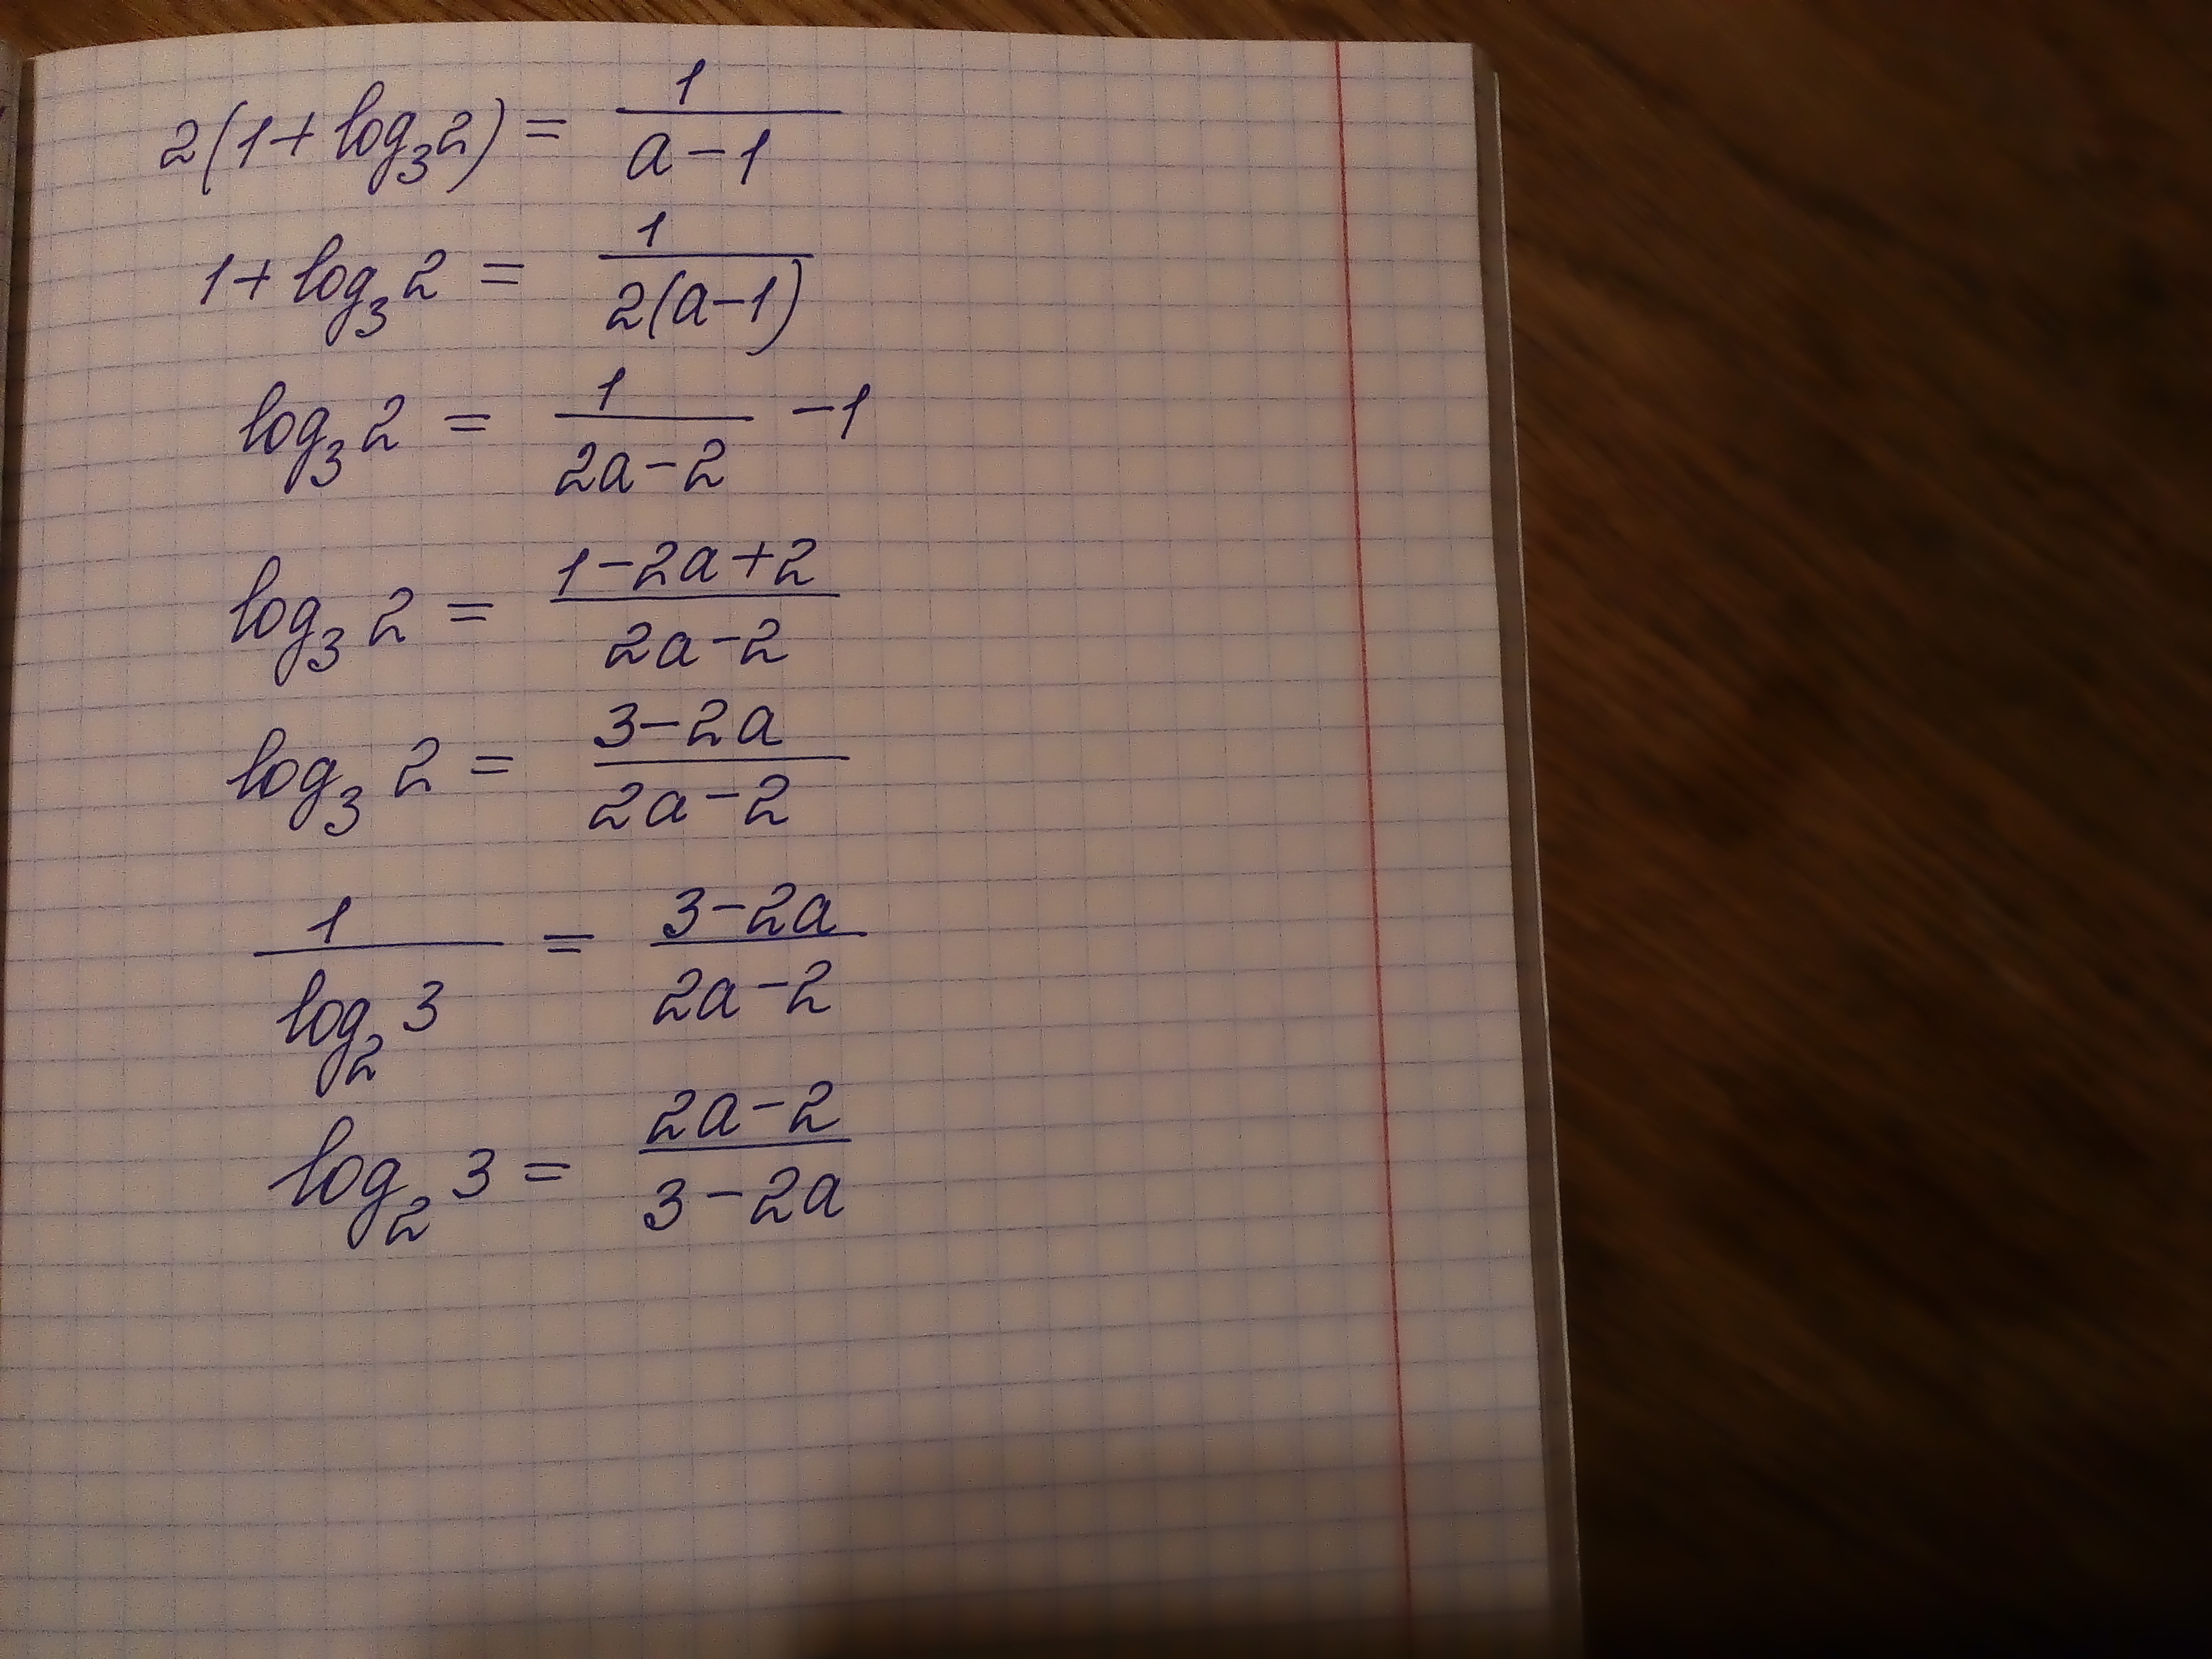 2(1+log₃2) = 1/(a-1)
1+log₃2 = 1/(2(a-1))
log₃2 = 1/(2a-2) -1
log₃2 = (1-2a+2)/(2a-2)
log₃2 = (3-2a)/(2a-2)
1/(log₂3) = (3-2a)/(2a-2)
log₂3 = (2a-2)/(3-2a)